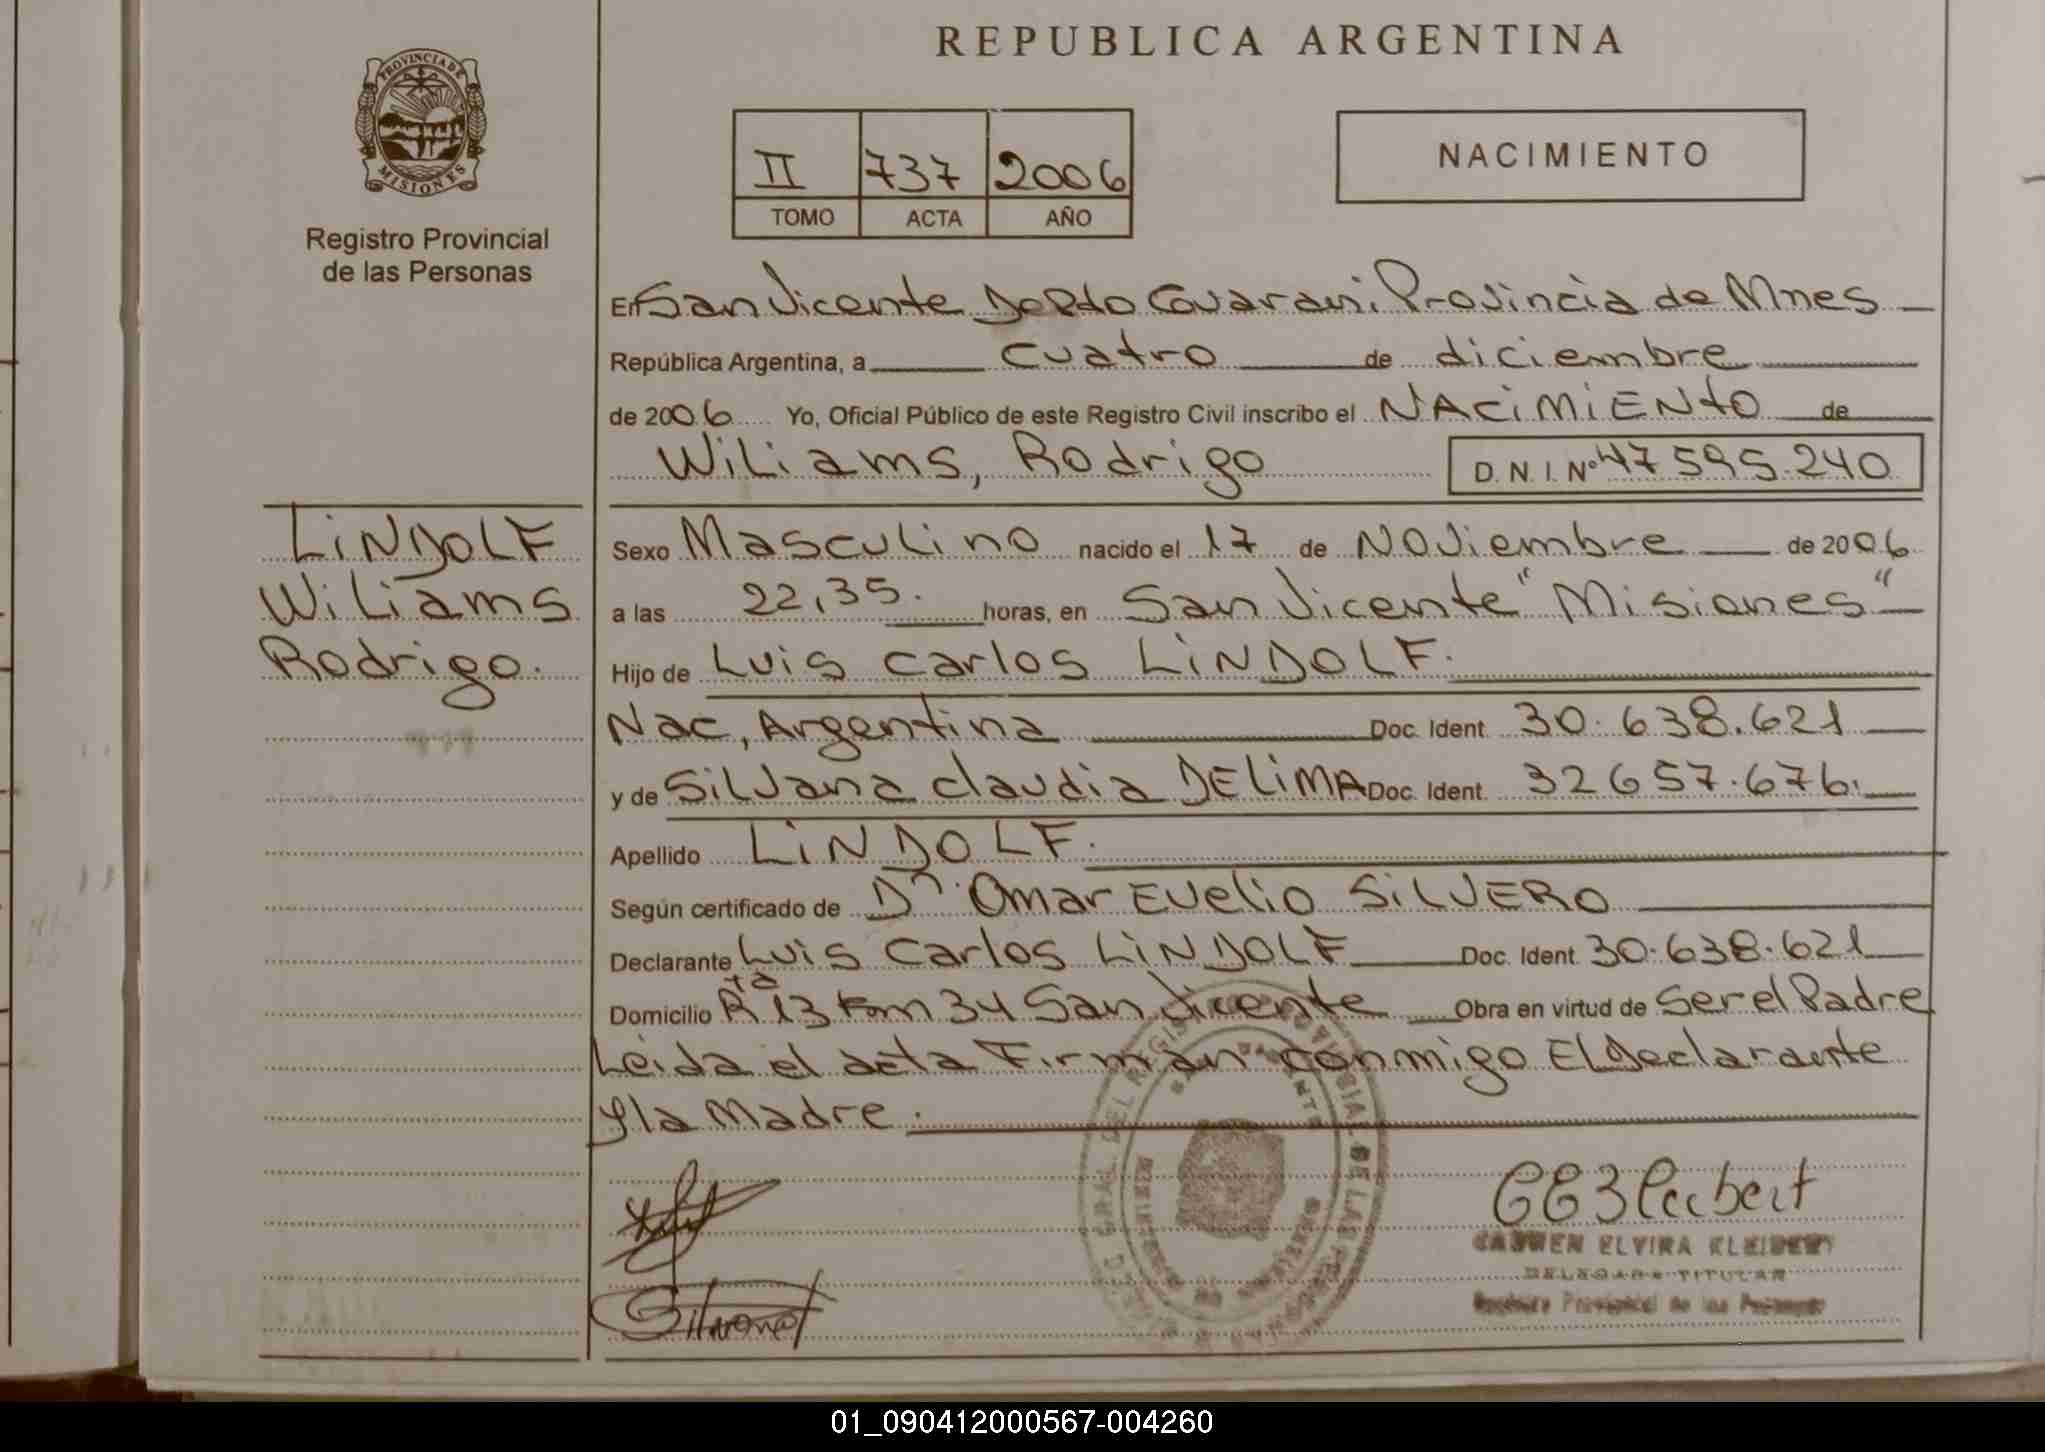 REPUBLICA ARGENTINA
PROVINCIA DE
MISIONES
Registro Provincial
de las Personas
II 737 2006
TOMO ACTA AÑO
NACIMIENTO
En San Vicente Depto Guarani Provincia de Mnes
República Argentina, a cuatro de diciembre
de 2006 Yo, Oficial Público de este Registro Civil inscribo el NACIMIENTO de
Wiliams, Rodrigo D.N.I.Nº 47595.240
LINDOLF
Wiliams
Rodrigo.
Sexo Masculino nacido el 17 de Noviembre de 2006
a las 22,35. horas, en San Vicente "Misiones"
Hijo de Luis Carlos LINDOLF.
Nac, Argentina Doc. Ident. 30.638.621
y de Silvana Claudia DELIMA Doc. Ident. 32657.676.
Apellido LINDOLF.
Según certificado de Dr. Omar Evelio SILVERO
Declarante Luis Carlos LINDOLF Doc. Ident. 30.638.621
Domicilio Rta 13 Km 34 San Vicente Obra en virtud de Ser el Padre
Leida el acta Firman conmigo El Declarante
y la Madre.
Silvana
CARMEN ELVIRA KLEIBERT
DELEGADA TITULAR
Registro Provincial de las Personas
01_090412000567-004260